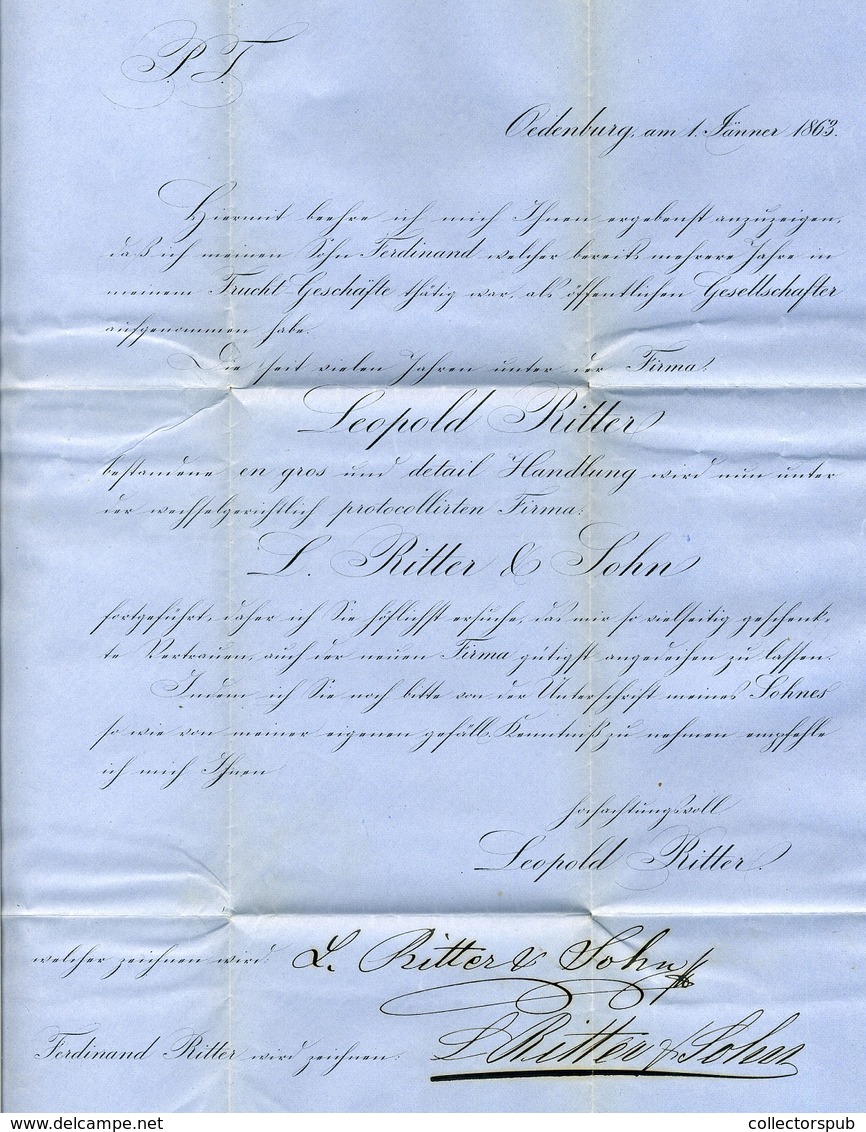 P. T.
Oedenburg, am 1. Jänner 1863.
Hiermit beehre ich mich Ihnen ergebenst anzuzeigen,
daß ich meinen Sohn Ferdinand welcher bereits mehrere Jahre in
meinem Frucht-Geschäfte thätig war, als öffentlichen Gesellschafter
aufgenommen habe.
Die seit vielen Jahren unter der Firma:
Leopold Ritter
bestandene en gros und detail Handlung wird nun unter
der wechselgerichtlich protocollirten Firma:
L. Ritter & Sohn
fortgeführt, daher ich Sie höflichst ersuche, das mir so vielseitig geschenk-
te Vertrauen, auch der neuen Firma gütigst angedeihen zu lassen.
Indem ich Sie noch bitte von der Unterschrift meines Sohnes
so wie von meiner eigenen gefäll. Kenntniß zu nehmen empfehle
ich mich Ihnen
hochachtungsvoll
Leopold Ritter.
welcher zeichnen wird: L. Ritter & Sohn
Ferdinand Ritter wird zeichnen: L Ritter & Sohn
www.delcampe.net
collectorspub